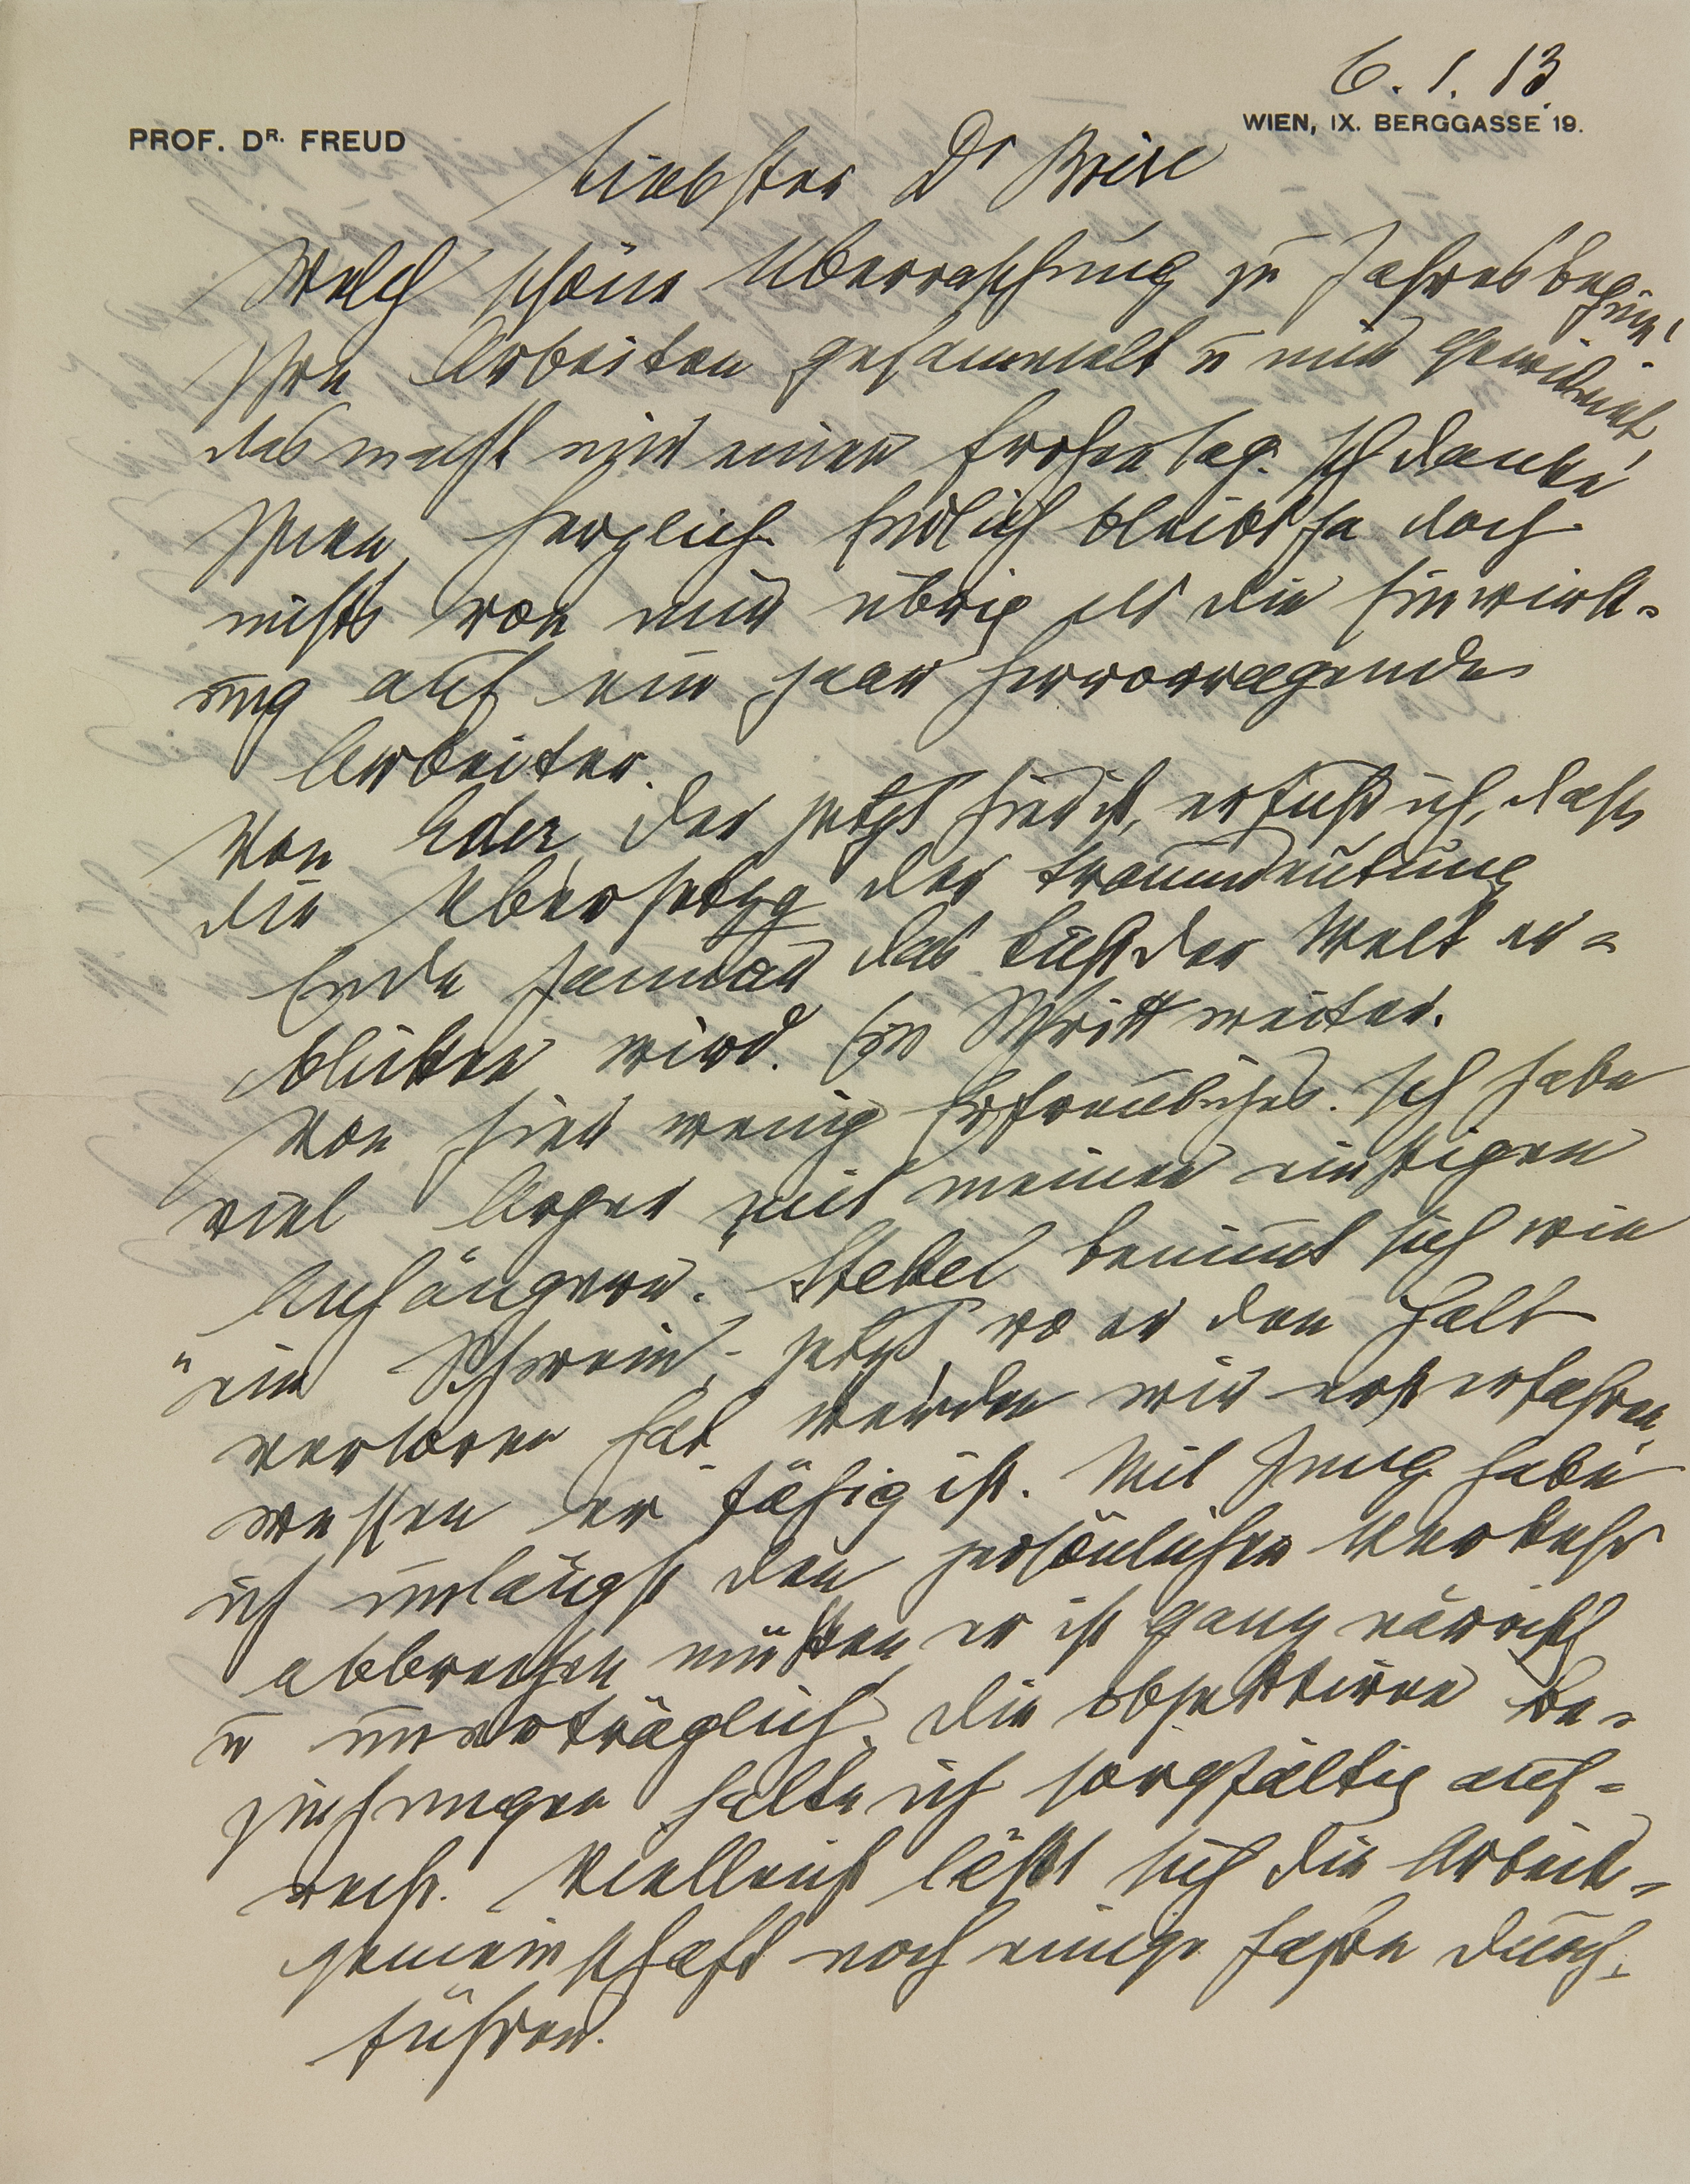 6. 1. 13.
PROF. DR. FREUD
WIEN, IX. BERGGASSE 19.
Liebster Dr Brill
Welch schöne Überraschung zu Jahresbeginn!
Ihre Arbeiten gesammelt u mir gewidmet,
das macht mir einen frohen Tag. Ich danke
Ihnen herzlich. Endlich bleibt ja doch
nichts von mir übrig als die Einwirk=
ung auf ein paar hervorragende
Arbeiter.
Von Eder, der jetzt hier ist, erfuhr ich, daß
die Übersetzg der Traumdeutung
Ende Januar das Licht der Welt er=
blicken wird. Ein Schritt weiter.
Von hier wenig Erfreuliches. Ich habe
viel Ärger mit meinen einstigen
„Anhängern“. Stekel benimmt sich wie
ein Schwein; jetzt wo er den Halt
verloren hat, werden wir erst erfahren,
wessen er fähig ist. Mit Jung habe
ich unlängst den persönlichen Verkehr
abbrechen müssen, er ist ganz närrisch
u unverträglich. Die objektiven Be-
ziehungen halte ich sorgfältig auf=
recht. Vielleicht läßt sich die Arbeits=
gemeinschaft noch einige Jahre durch-
führen.